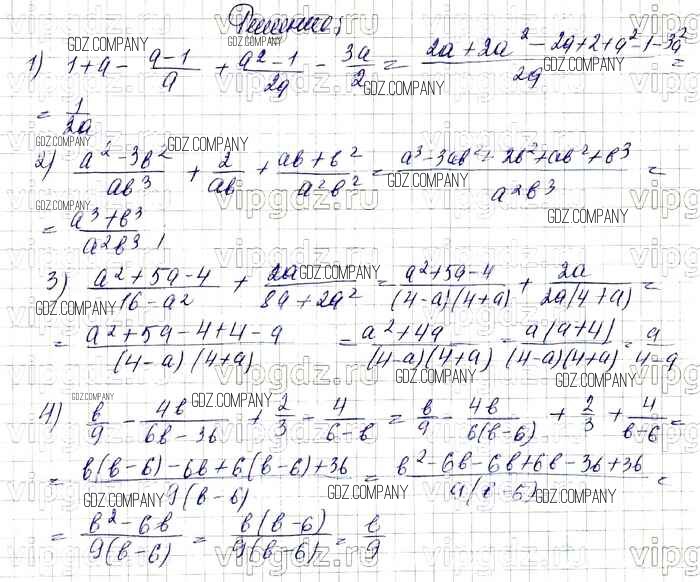 Решение:
1) 1 + a - (a-1)/a + (a² - 1)/2a - 3a/2 = (2a + 2a² - 2a + 2 + a² - 1 - 3a²)/2a =
= 1/2a
2) (a² - 3b²)/ab³ + 2/ab + (ab + b²)/a²b² = (a³ - 3ab² + 2b² + ab² + b³)/a²b³ =
= (a³ + b³)/a²b³
3) (a² + 5a - 4)/(16 - a²) + 2a/(8a + 2a²) = (a² + 5a - 4)/((4-a)(4+a)) + 2a/(2a(4+a)) =
= (a² + 5a - 4 + 4 - a)/((4-a)(4+a)) = (a² + 4a)/((4-a)(4+a)) = a(a+4)/((4-a)(4+a)) = a/(4-a)
4) b/9 - 4b/(6b - 36) + 2/3 - 4/(6-b) = b/9 - 4b/(6(b-6)) + 2/3 + 4/(b-6) =
= (b(b-6) - 6b + 6(b-6) + 36)/(9(b-6)) = (b² - 6b - 6b + 6b - 36 + 36)/(9(b-6)) =
= (b² - 6b)/(9(b-6)) = b(b-6)/(9(b-6)) = b/9
GDZ.COMPANY
vipgdz.ru